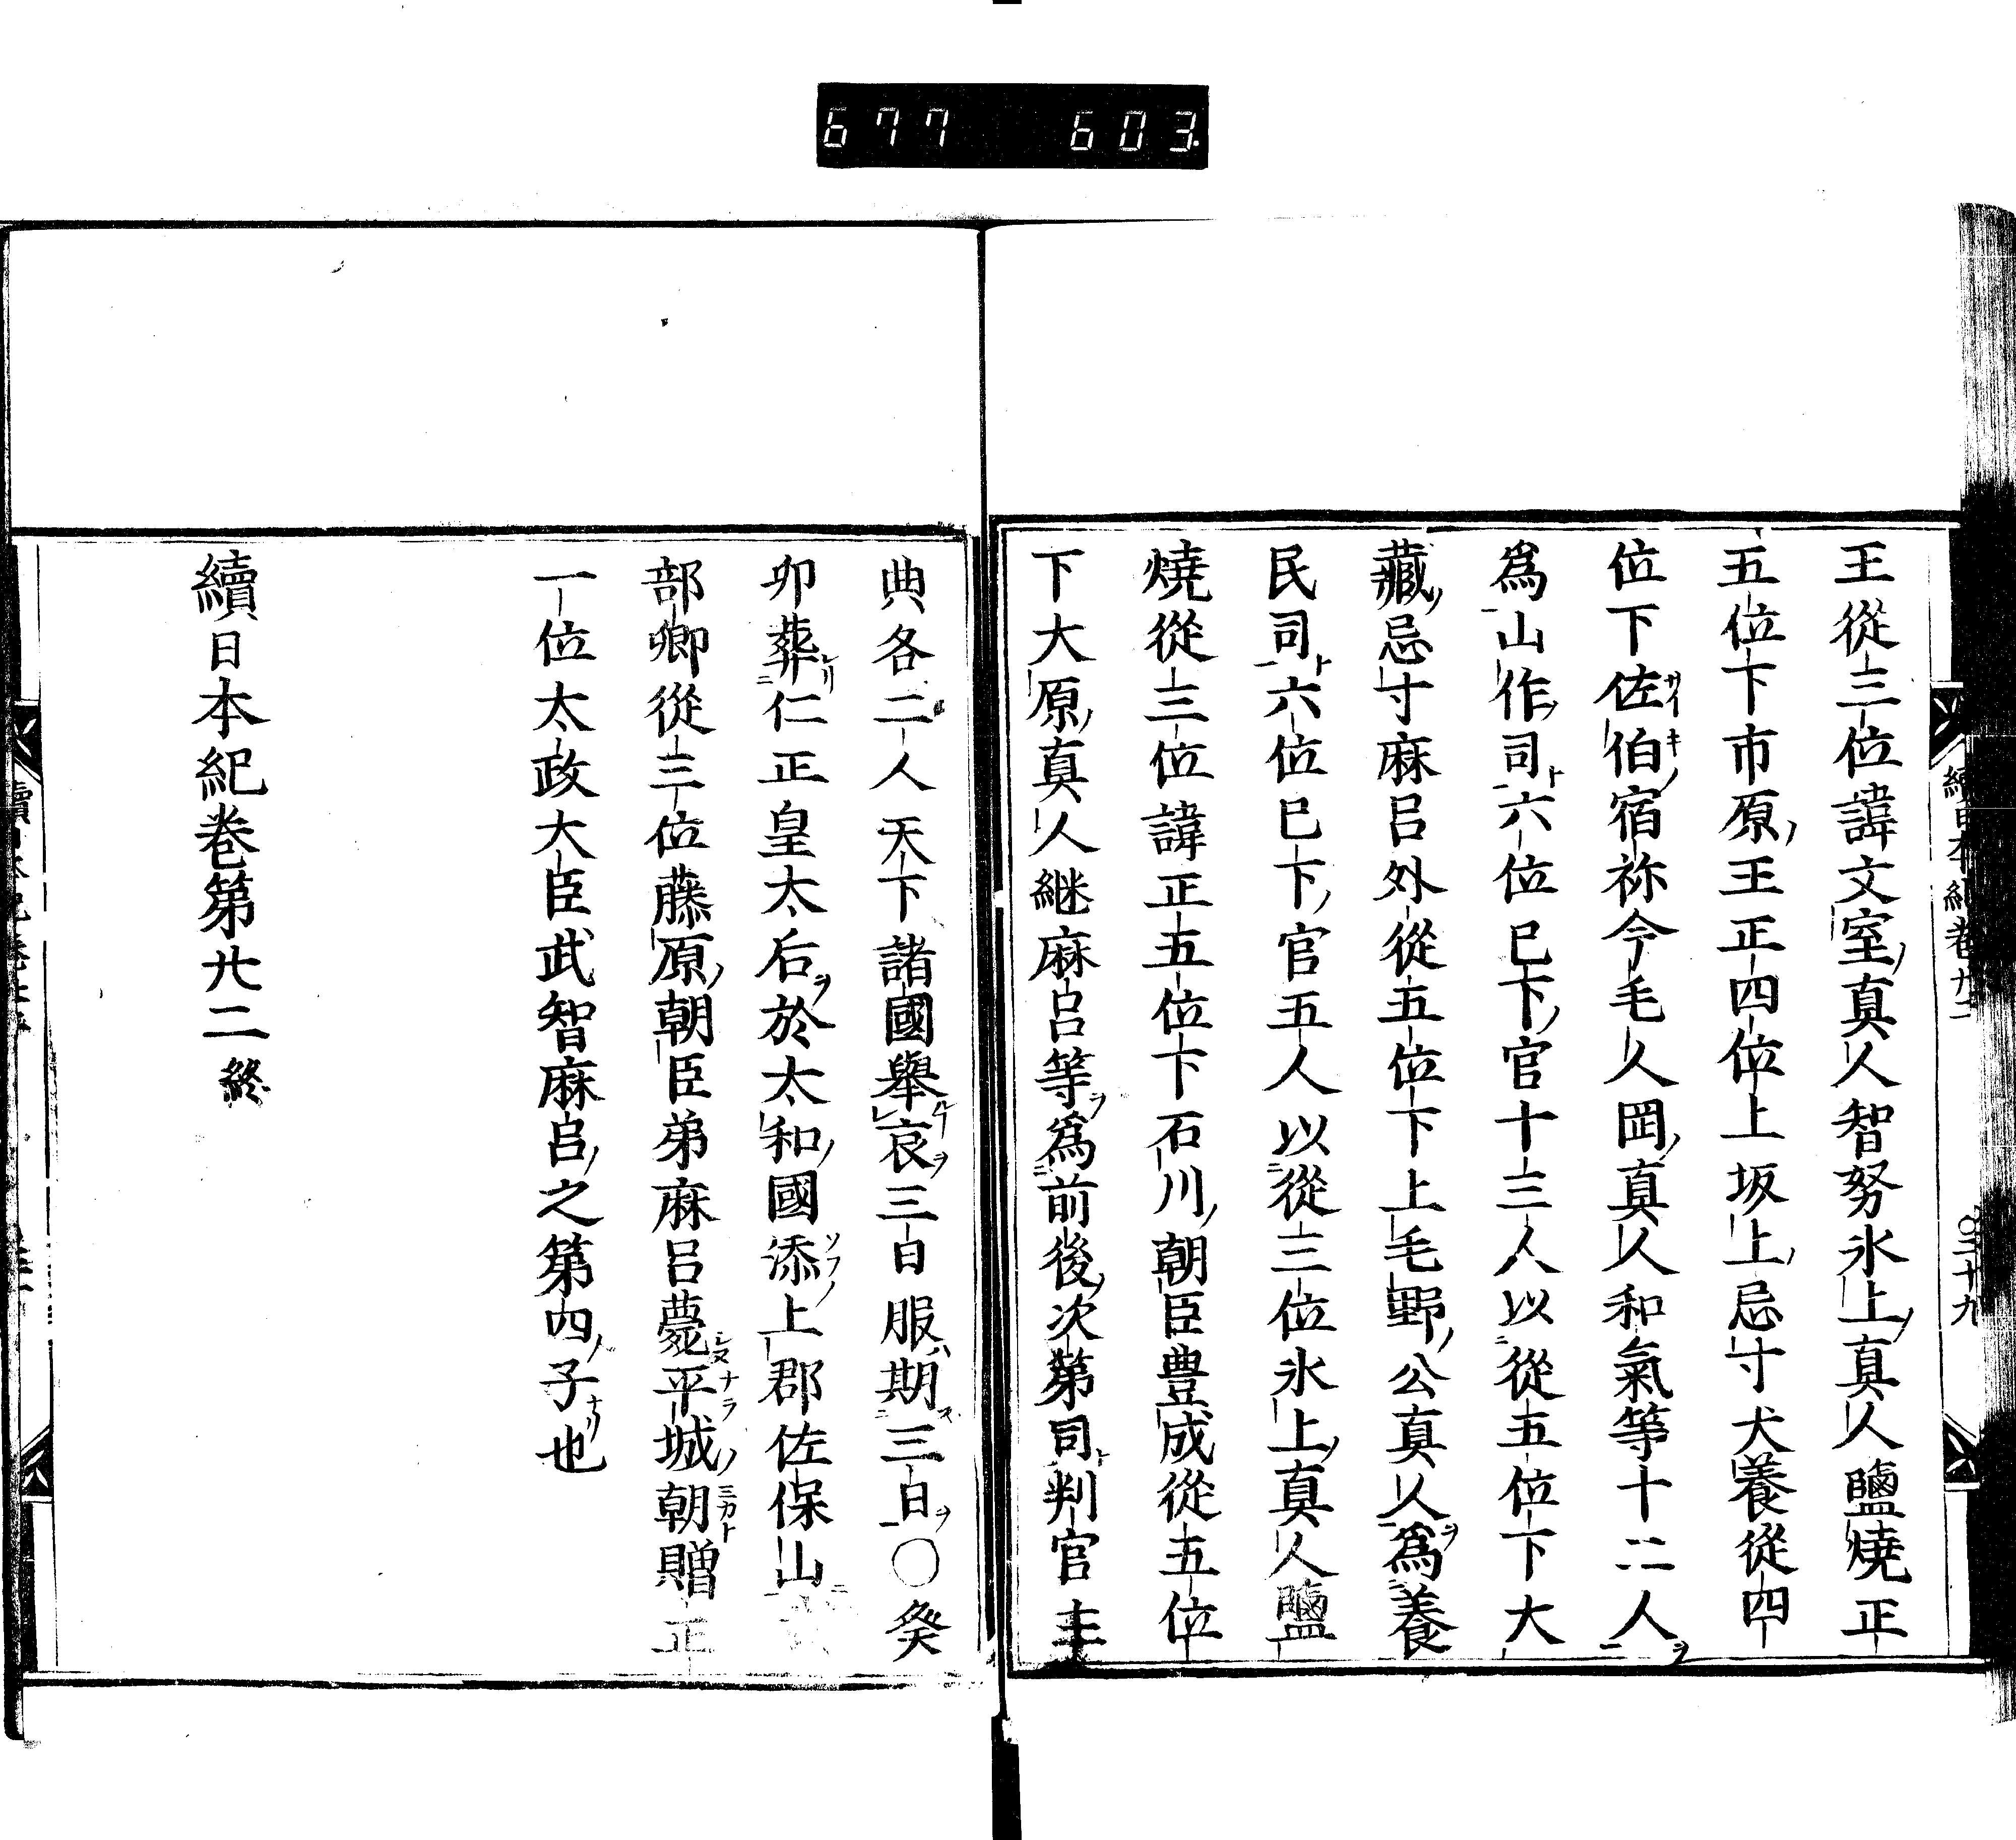 677 603
王從三位諱文室真人智努氷上真人鹽燒正
五位下市原王正四位上坂上忌寸犬養從四
位下佐伯宿祢今毛人岡真人和氣等十二人
爲山作司六位已下官十三人以從五位下大
藏忌寸麻呂外從五位下上毛野公真人爲養
民司六位已下官五人以從三位氷上真人鹽
燒從三位諱正五位下石川朝臣豊成從五位
下大原真人継麻呂等爲前後次第司判官主
典各二人天下諸國擧哀三日服期三日○癸
卯葬仁正皇太后於太和國添上郡佐保山
部卿從三位藤原朝臣弟麻呂薨平城朝贈正
一位太政大臣武智麻呂之第四子也
續日本紀巻第廿二 終
續日本紀巻廿二 ○三十九